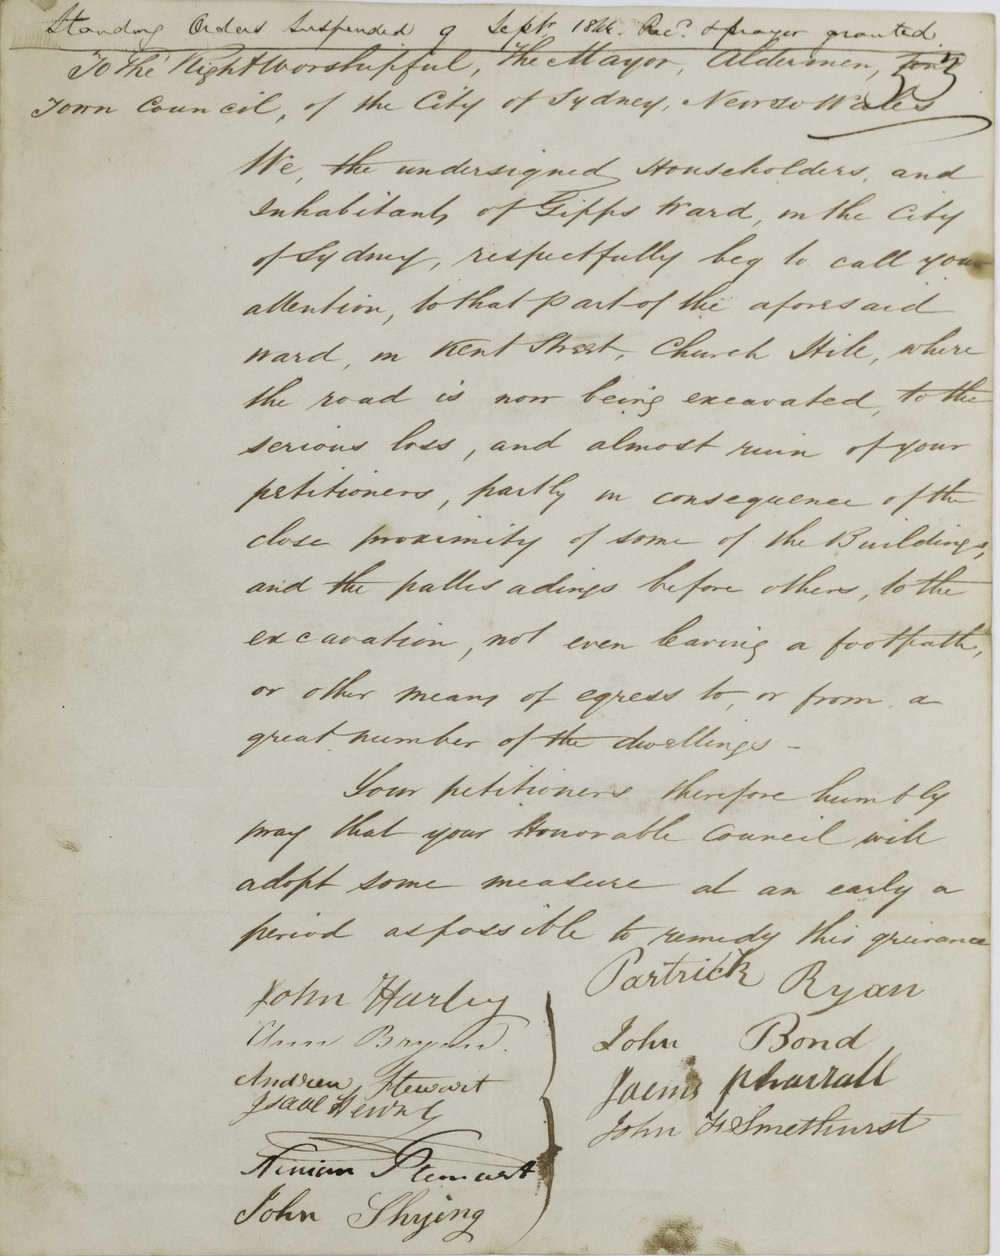 Standing Orders Suspended 9 Sept. 1844. Rec.d & prayer granted
To The Right Worshipful, The Mayor, Aldermen, and
Town Council, of the City of Sydney, New So Wales
We, the undersigned Householders, and
Inhabitants of Gipps Ward, in the City
of Sydney, respectfully beg to call your
attention, to that part of the aforesaid
ward, in Kent Street, Church Hill, where
the road is now being excavated, to the
serious loss, and almost ruin of your
petitioners, partly in consequence of the
close proximity of some of the Buildings,
and the pallisadings before others, to the
excavation, not even leaving a footpath,
or other means of egress to, or from, a
great number of the dwellings -
Your petitioners therefore humbly
pray that your Honorable Council will
adopt some measure at an early a
period as possible to remedy this grievance
John Harley
Ann Bryan.
Andrew Stewart
Isaac
Ninian Stewart
John Shying
Partrick Ryan
John Bond
Jaems Pharrall
John F Smethurst